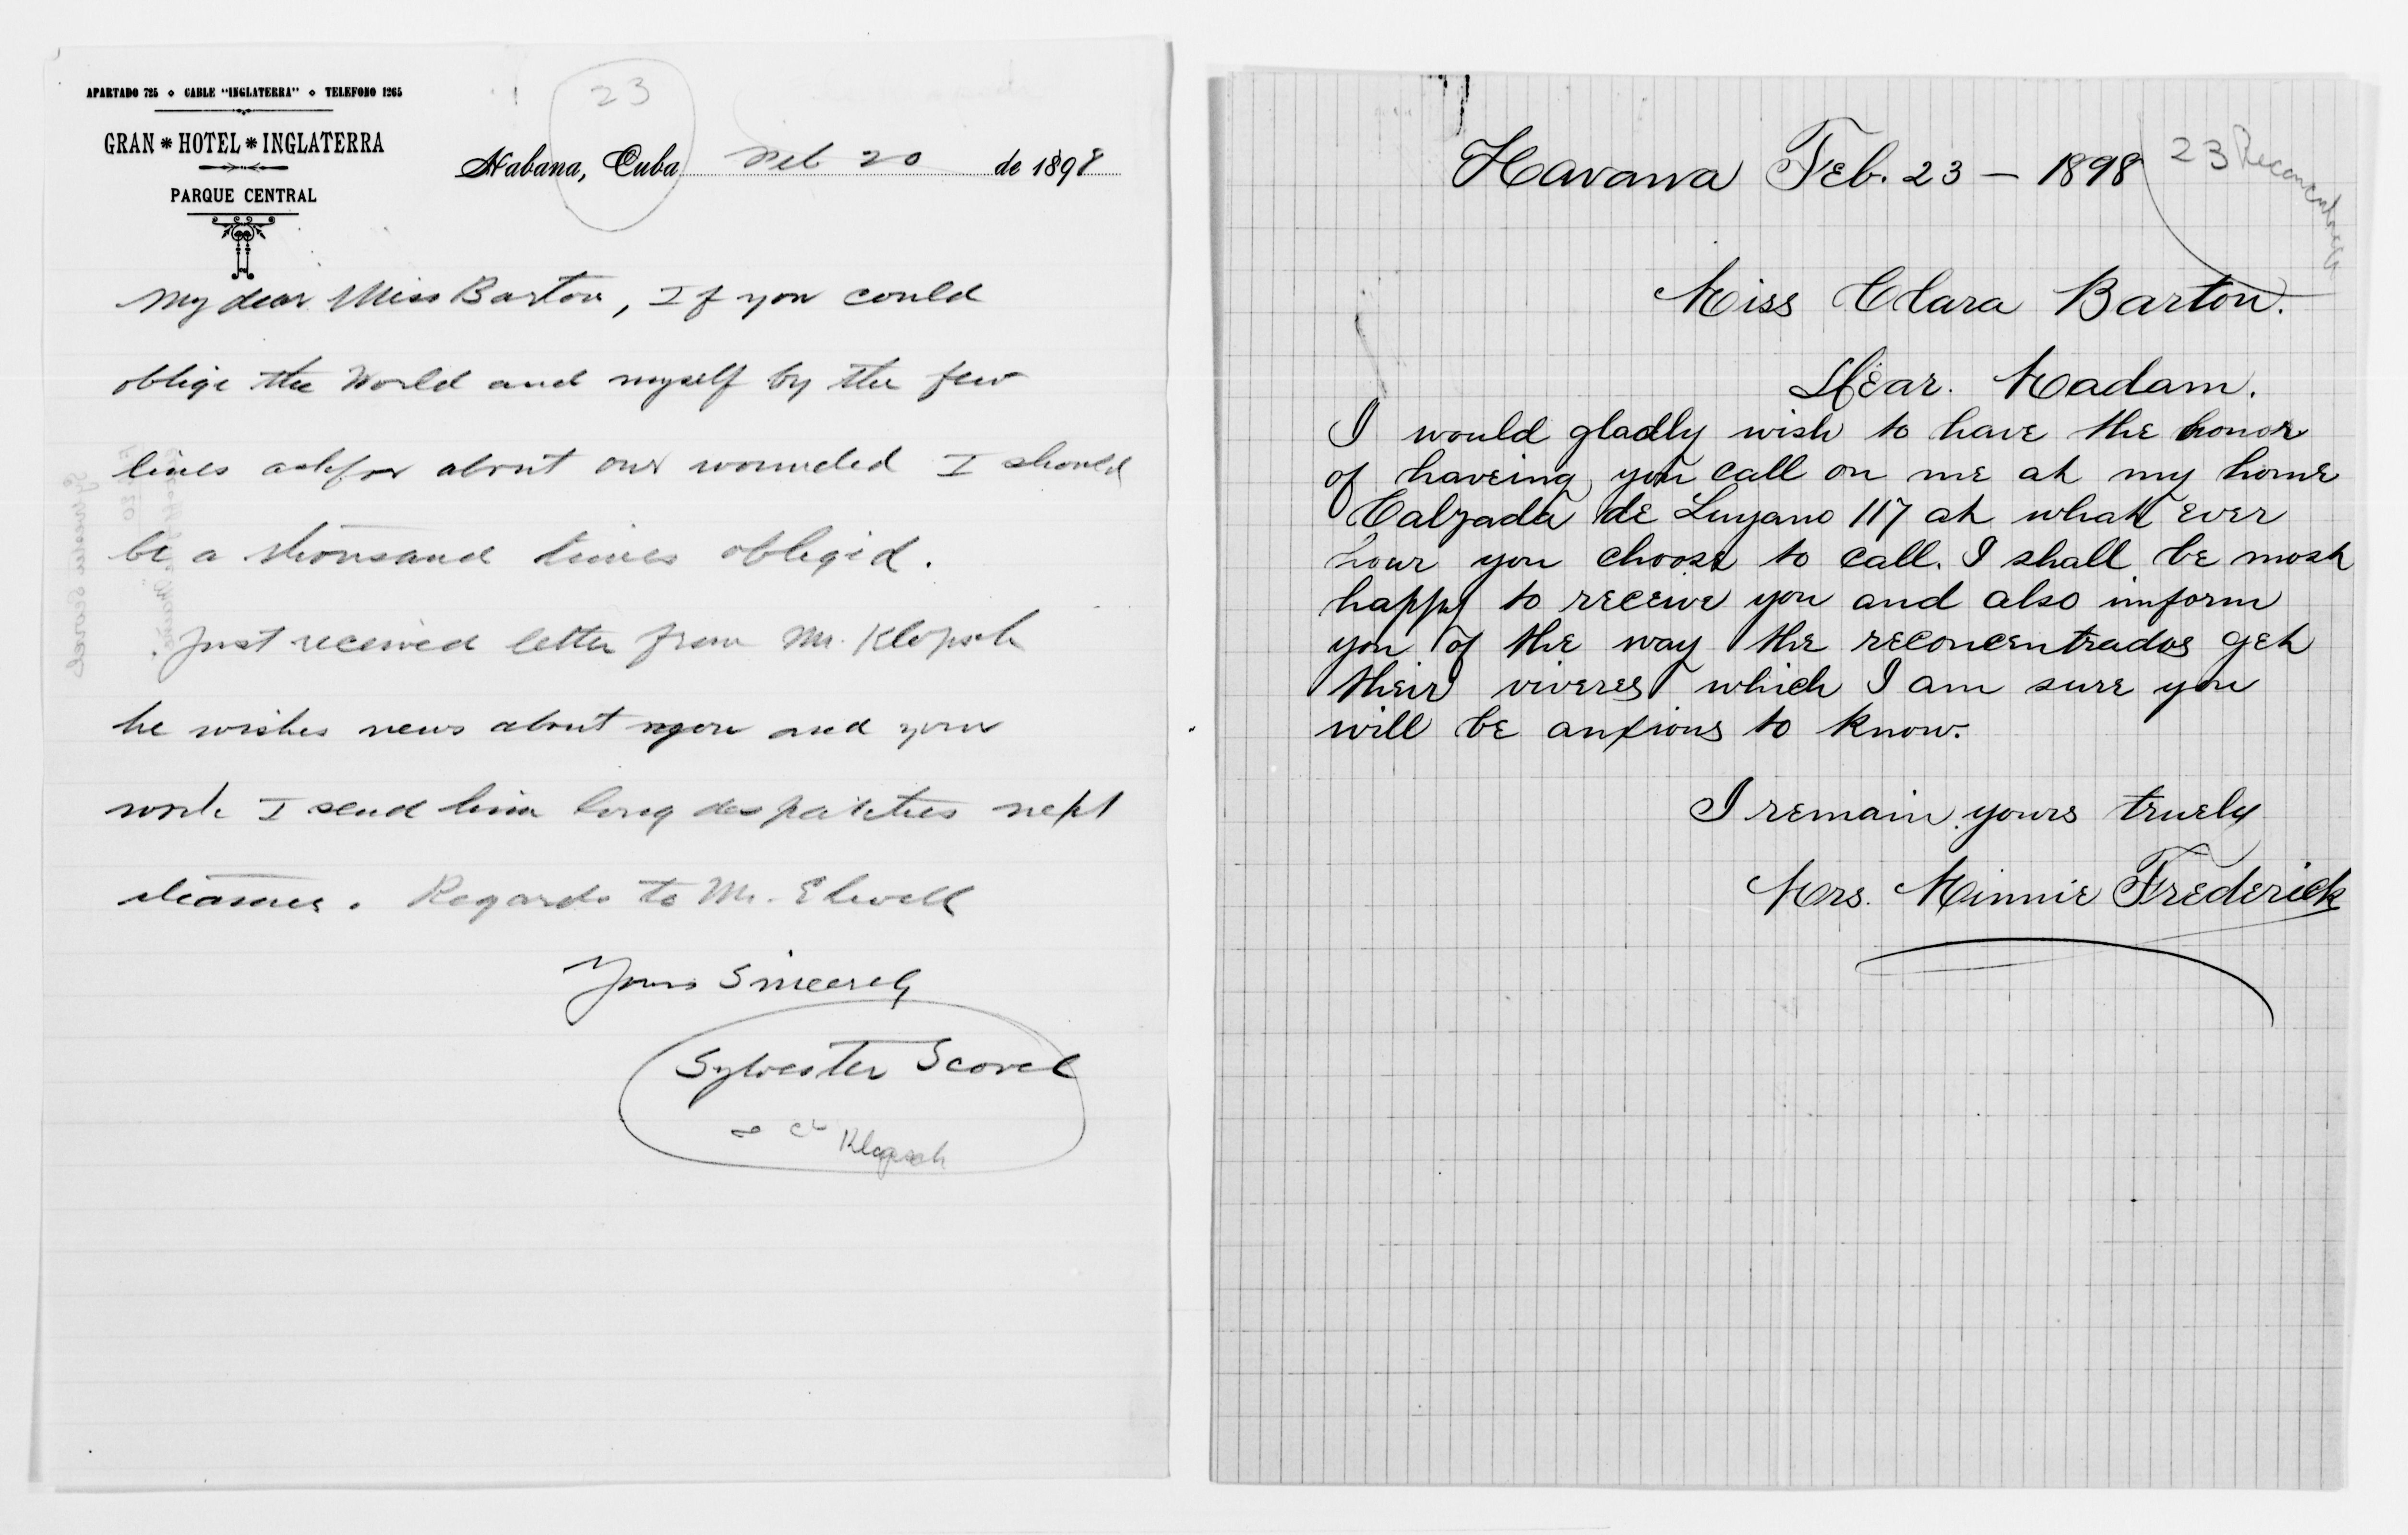 APARTADO 725 ⋄ CABLE "INGLATERRA" ⋄ TELEFONO 1265
GRAN * HOTEL * INGLATERRA
PARQUE CENTRAL
23
Habana, Cuba Feb 20 de 1898
My dear Miss Barton, If you could
oblige the World and myself by the few
lines askfor about our wounded I should
be a thousand times obliged.
Just received letter from Mr. Klopsch
he wishes news about you and your
work I send him long despatches next
steamer. Regards to Mr. Elwell
Yours Sincerely
Sylvester Scovel
Klopsch
Havana Feb. 23 – 1898
23 Reconcentrados
Miss Clara Barton.
Dear. Madam.
I would gladly wish to have the honor
of haveing you call on me at my home
Calzada de Luyano 117 at what ever
hour you choose to call. I shall be most
happy to receive you and also imform
you of the way the reconcentrados get
their viveres which I am sure you
will be anxious to know.
I remain yours truely
Mrs. Minnie Frederick